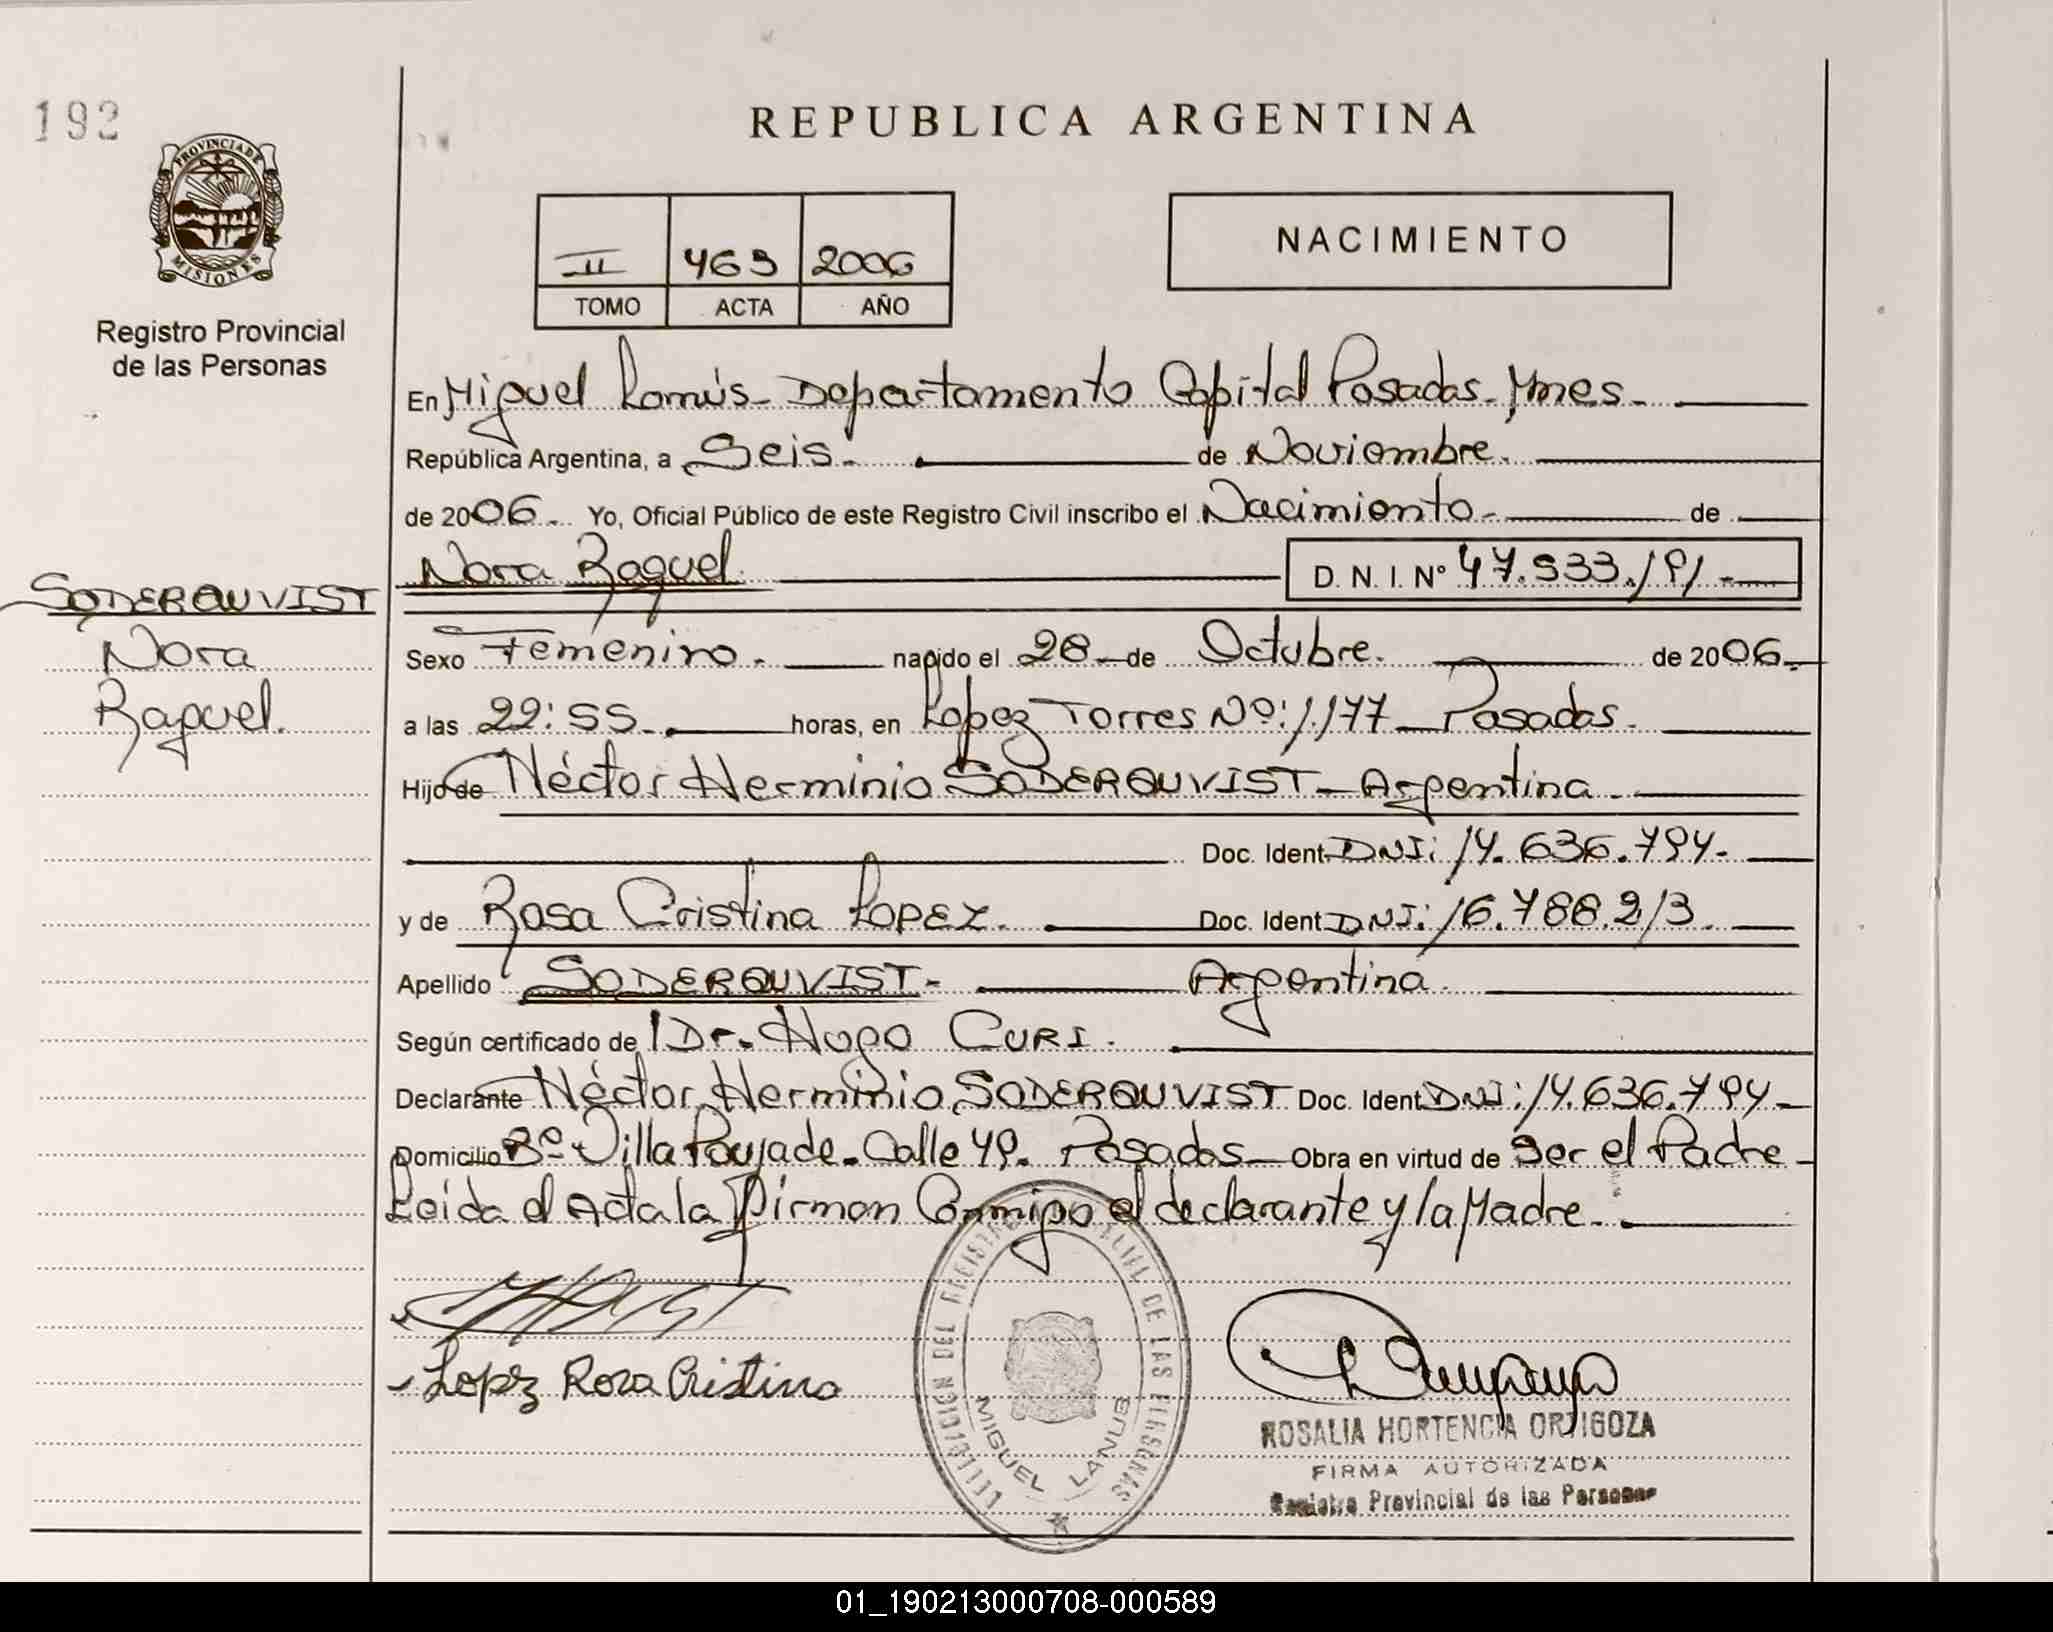 192
REPUBLICA ARGENTINA
PROVINCIA DE
MISIONES
Registro Provincial
de las Personas
II 463 2006
TOMO ACTA AÑO
NACIMIENTO
En Miguel Lanús - Departamento Capital Posadas - Mnes -
República Argentina, a Seis - de Noviembre.
de 2006 - Yo, Oficial Público de este Registro Civil inscribo el Nacimiento - de
Nora Raquel. D. N. I. Nº 47.533.191 -
SODERQUVIST
Nora
Raquel.
Sexo Femenino. nacido el 28 - de Octubre. de 2006 -
a las 22:55 - horas, en Lopez Torres Nº: 1.177 - Posadas -
Hijo de Héctor Herminio SODERQUVIST - Argentina -
Doc. Ident. DNI: 14.636.794 -
y de Rosa Cristina LOPEZ. Doc. Ident. DNI: 16.788.213.
Apellido SODERQUVIST - Argentina.
Según certificado de Dr. Hugo CURI.
Declarante Héctor Herminio SODERQUVIST Doc. Ident. DNI: 14.636.794 -
Domicilio Bº Villa Poujade - Calle 49. Posadas - Obra en virtud de Ser el Padre -
Leida el Acta la Firman Conmigo el declarante y la Madre -
Lopez Rosa Cristina
DEL REGISTRO CIVIL DE LAS PERSONAS
MIGUEL LANUS
ROSALIA HORTENCIA ORTIGOZA
FIRMA AUTORIZADA
Registro Provincial de las Personas
01_190213000708-000589